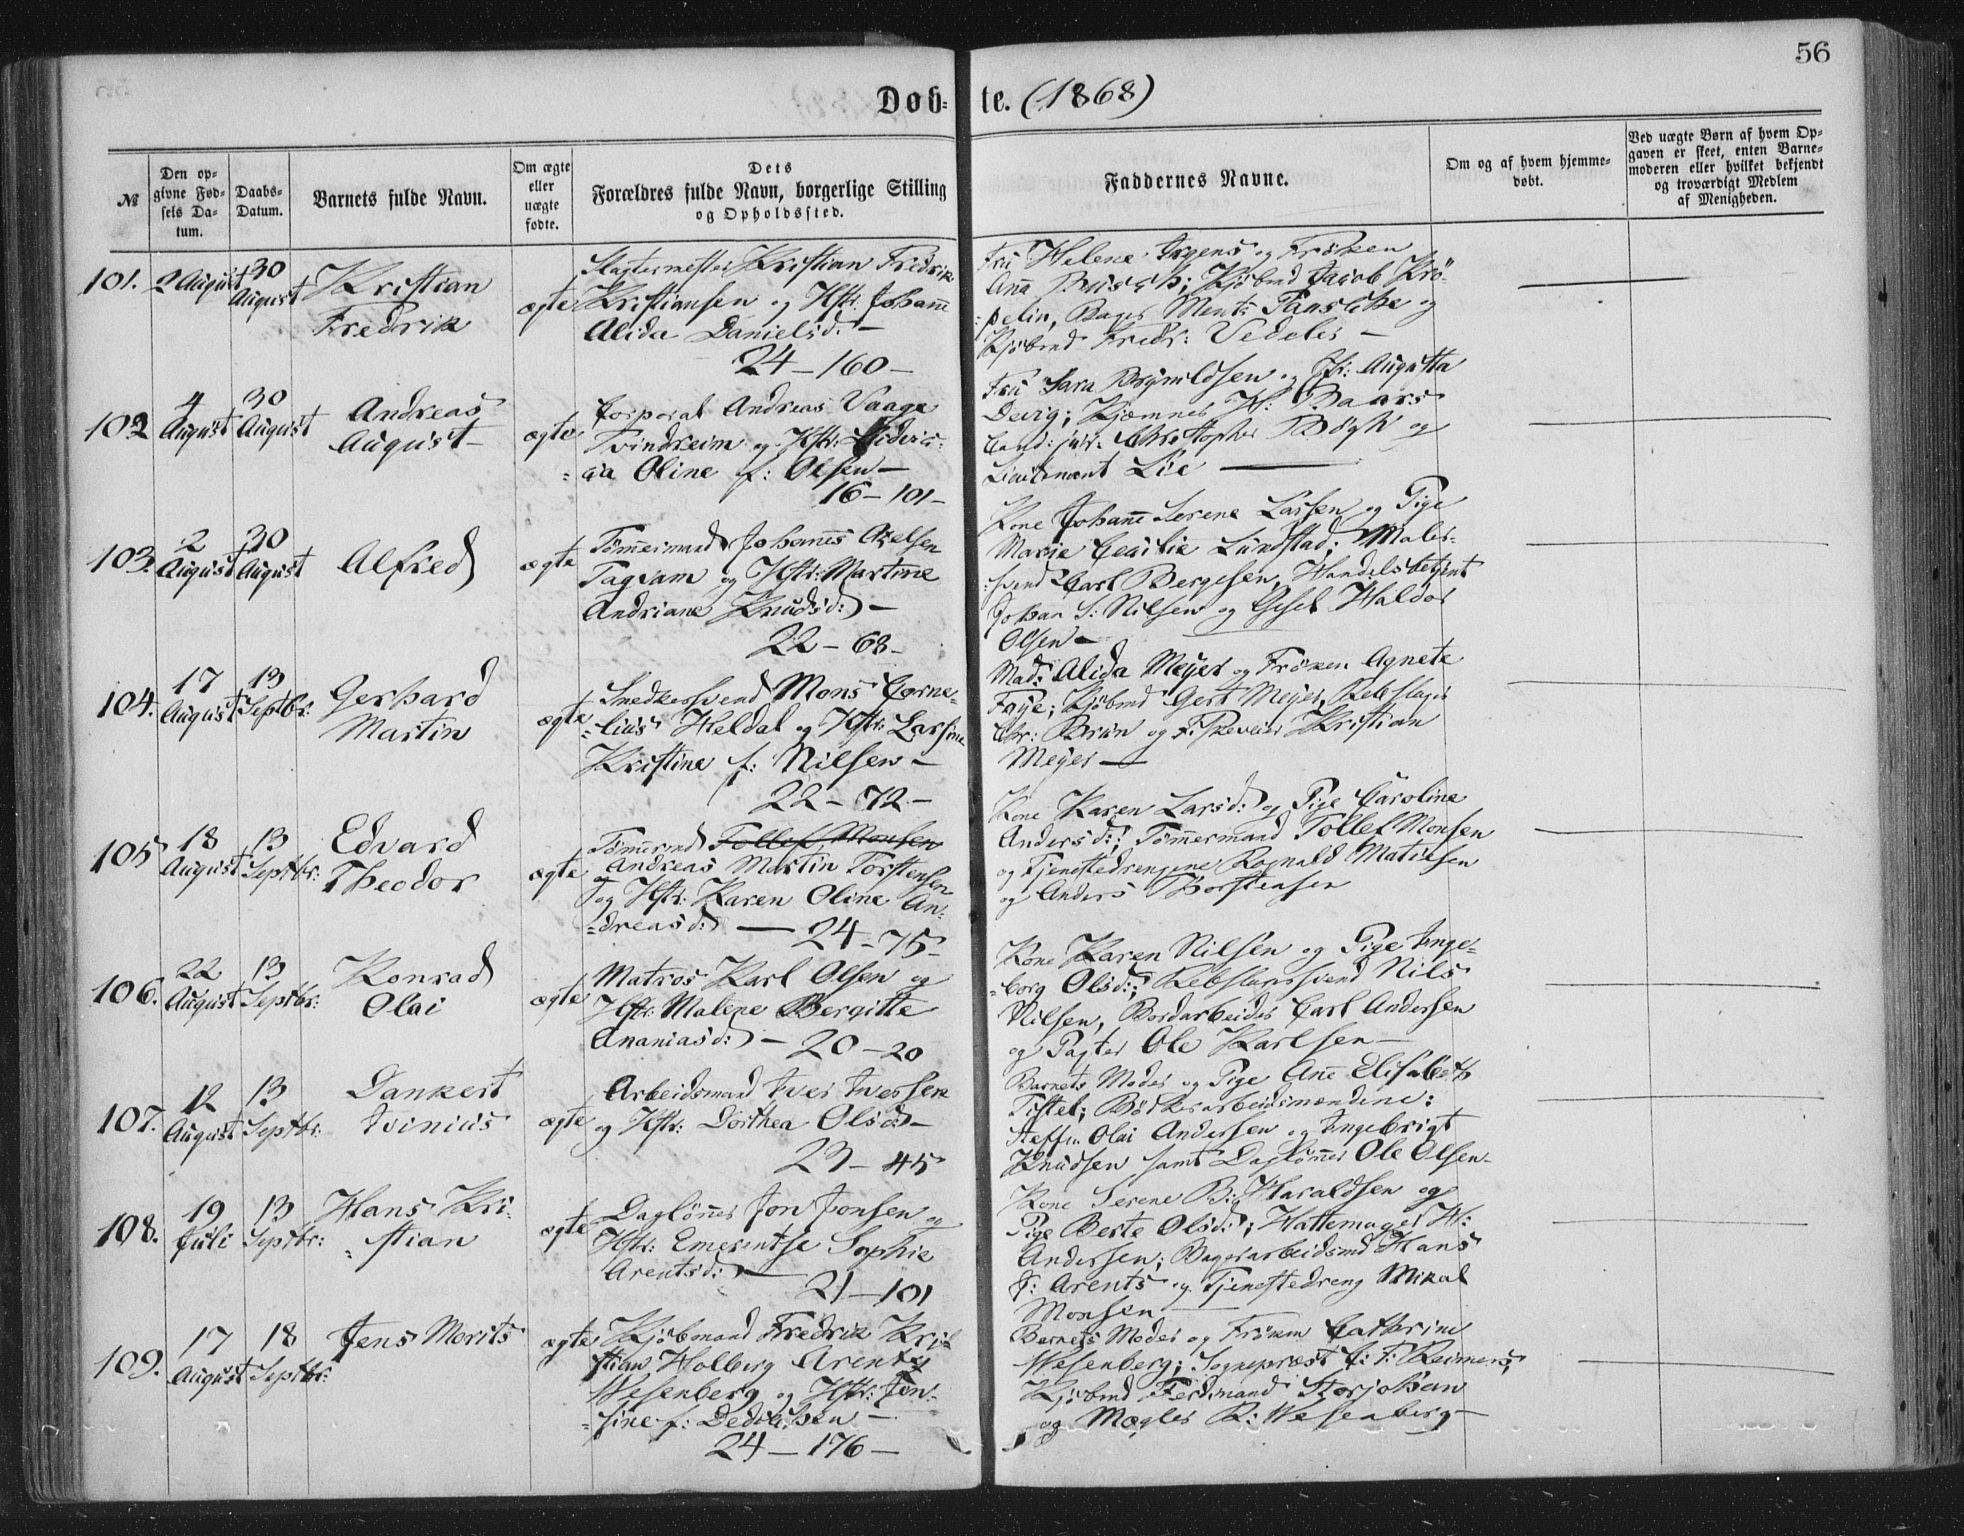 56
Døb-te. (1868)
№
Den op-
givne Fød-
sels Da-
tum.
Daabs-
Datum.
Barnets fulde Navn.
Om ægte
eller
uægte
fødte.
Dets
Forældres fulde Navn, borgerlige Stilling
og Opholdssted.
Faddernes Navne.
Om og af hvem hjemme-
døbt.
Ved uægte Børn af hvem Op-
gaven er skeet, enten Barne-
moderen eller hvilket bekjendt
og troværdigt Medlem
af Menigheden.
101.
2 August
30
August
Kristian
Fredrik
ægte
Slagtermester Kristian Fredrik
Kristiansen og Hstr: Johanne
Alida Danielsd: —
24 — 160 —
Fru Helene Irgens og Frøken
Anna Busch; Kjøbmd Jacob Krö-
pelin, Bager Mentz Panschke og
Kjøbmd Fredr: Vedeler —
102
4
August
30
August
Andreas
August —
ægte
Corporal Andreas Vaage
Tvindreim og Hstr: Ludvic-
=ca Oline f: Olsen —
16 — 101 —
Fru Sara Brynildsen og Jfr: Augusta
Devig; Kjæmner H: Baars
Cand: jur: Christopher Bøgh og
Lieutenant Lie —
103.
2
August
30
August
Alfred
ægte
Tömmermand Johannes Axelsen
Tagvam og Hstr: Martine
Andriane Knudsd: —
22 — 68 —
Kone Johanne Serene Larsen og Pige
Marie Cecilie Lundstad; Maler-
svend Carl Bergesen, Handelsbetjent
Johan S: Nilsen og Gesel Haldor
Olsen —
104.
17
August
13
Septbr:
Gerhard
Martin
ægte
Smedkersvend Mons Corne-
=lius Heldal og Hstr: Larsine
Kristine f: Nilsen —
22 — 72 —
Mad: Alida Meyer og Frøken Agnete
Faye; Kjøbmd Gert Meyer, Rebslager
Chr: Brun og Fiskeveier Kristian
Meyer —
105
18
August
13
Septbr:
Edvard
Theodor
ægte
Tömermd Tollef Monsen
Andreas Martin Torstensen
og Hstr: Karen Oline An-
=dreasd: — 24 — 75 —
Kone Karen Larsd: og Pige Caroline
Andersd:; Tømmermand Tollef Monsen
og Tjenestedrengene Rognald Matiesen
og Anders Thorstensen
106.
22
August
13
Septbr:
Konrad
Olai
ægte
Matros Karl Olsen og
Hstr: Malene Bergitte
Ananiasd: — 20 — 20
Kone Karen Nilsen og Pige Inge-
=borg Olsd:; Rebslagersvend Nils
Nilsen, Bordarbeider Carl Andersen
og Pagter Ole Karlsen —
107.
12
August
13
Septbr:
Dankert
Ivinius
ægte
Arbeidsmand Iver Iversen
og Hstr: Dorthea Olsd —
23 — 45
Barnets Moder og Pige Ane Elisabeth
Tistel; Bödkerarbeidsmændene:
Steffen Olai Andersen og Ingebrigt
Knudsen samt Daglönner Ole Olsen —
108.
19
Juli
13
Septbr:
Hans Kri-
=stian
ægte
Daglönner Jon Jonsen og
Hstr: Emerentse Sophie
Arentsd: —
21 — 101
Kone Serene B: Haraldsen og
Pige Berte Olsd:; Hattemager H:
Andersen; Bagerarbeidsmd Hans
J: Arents og Tjenestedreng Mikal
Monsen —
109.
17
August
18
Septbr:
Jens Morits
ægte
Kjøbmand Fredrik Kri-
stian Holberg Arentz
Wesenberg og Hstr: Jen-
=sine f: Dedekam —
24 — 176 —
Barnets Moder og Frøken Cathrine
Wesenberg; Sognepræst C: F: Reimers,
Kjøbmd Ferdinand Storjohan
og Mægler R: Wesenberg —